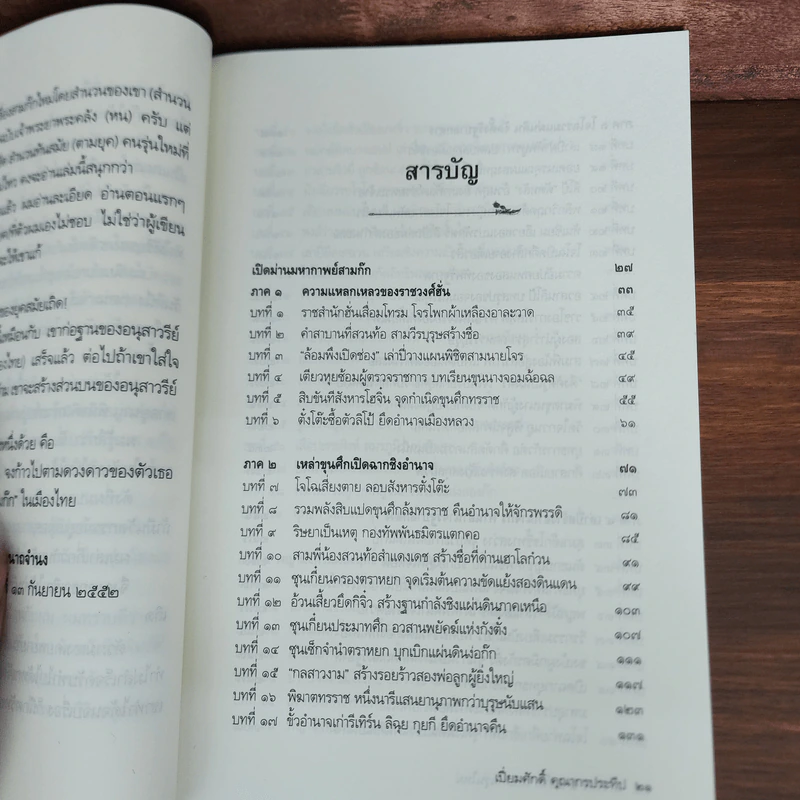 ของสามก๊กใหม่โดยสำนวนของเขา (สำนวน
ฉบับเจ้าพระยาพระคลัง (หน) ครับ แต่
สำนวนทันสมัย (ตามยุค) คนรุ่นใหม่ที่
คงจะอ่านเล่มนี้สนุกกว่า
แล้ว ผมอ่านละเอียด อ่านตอนแรกๆ
ที่ตัวผมเองไม่ชอบ ไม่ใช่ว่าผู้เขียน
จะให้เขาแก้
ของยุคสมัยเถิด!
เหมือนกับ เขาก่อฐานของอนุสาวรีย์
ไทย) เสร็จแล้ว ต่อไปถ้าเขาใส่ใจ
เขาจะสร้างส่วนบนของอนุสาวรีย์
หนึ่งด้วย คือ
จงก้าวไปตามดวงดาวของตัวเธอ
ก๊ก" ในเมืองไทย
นาถจำนง
๑๓ กันยายน ๒๕๕๒
สารบัญ
เปิดม่านมหากาพย์สามก๊ก ๒๗
ภาค ๑ ความแหลกเหลวของราชวงศ์ฮั่น ๓๓
บทที่ ๑ ราชสำนักฮั่นเสื่อมโทรม โจรโพกผ้าเหลืองอาละวาด ๓๕
บทที่ ๒ คำสาบานที่สวนท้อ สามวีรบุรุษสร้างชื่อ ๓๙
บทที่ ๓ "ล้อมพึงเปิดช่อง" เล่าปี่วางแผนพิชิตสามนายโจร ๔๕
บทที่ ๔ เตียวหุยซ้อมผู้ตรวจราชการ บทเรียนขุนนางจอมฉ้อฉล ๔๙
บทที่ ๕ สิบขันทีสังหารโฮจิ๋น จุดกำเนิดขุนศึกทรราช ๕๕
บทที่ ๖ ตั๋งโต๊ะซื้อตัวลิโป้ ยึดอำนาจเมืองหลวง ๖๑
ภาค ๒ เหล่าขุนศึกเปิดฉากชิงอำนาจ ๗๑
บทที่ ๗ โจโฉเสี่ยงตาย ลอบสังหารตั๋งโต๊ะ ๗๓
บทที่ ๘ รวมพลังสิบแปดขุนศึกล้มทรราช คืนอำนาจให้จักรพรรดิ ๘๑
บทที่ ๙ ริษยาเป็นเหตุ กองทัพพันธมิตรแตกคอ ๘๕
บทที่ ๑๐ สามพี่น้องสวนท้อสำแดงเดช สร้างชื่อที่ด่านเฮาโลก๋วน ๙๑
บทที่ ๑๑ ซุนเกี๋ยนครองตราหยก จุดเริ่มต้นความขัดแย้งสองดินแดน ๙๙
บทที่ ๑๒ อ้วนเสี้ยวยึดกิจิ๋ว สร้างฐานกำลังชิงแผ่นดินภาคเหนือ ๑๐๓
บทที่ ๑๓ ซุนเกี๋ยนประมาทศึก อวสานพยัคฆ์แห่งกังตั๋ง ๑๐๗
บทที่ ๑๔ ซุนเซ็กจำนำตราหยก บุกเบิกแผ่นดินง่อก๊ก ๑๑๑
บทที่ ๑๕ "กลสาวงาม" สร้างรอยร้าวสองพ่อลูกผู้ยิ่งใหญ่ ๑๑๗
บทที่ ๑๖ พิฆาตทรราช หนึ่งนารีแสนยานุภาพกว่าบุรุษนับแสน ๑๒๓
บทที่ ๑๗ ขั้วอำนาจเก่ารีเทิร์น ลิฉุย กุยกี ยึดอำนาจคืน ๑๓๑
เปี่ยมศักดิ์ คุณากรประทีป ๒๑